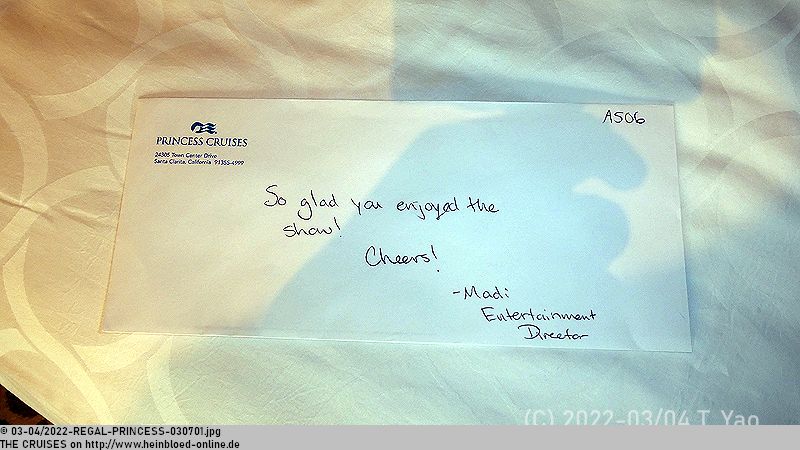 A506
PRINCESS CRUISES
24305 Town Center Drive
Santa Clarita, California 91355-4999
So glad you enjoyed the
show!
Cheers!
-Madi
Entertainment
Director
(C) 2022-03/04 T. Yao
© 03-04/2022-REGAL-PRINCESS-030701.jpg
THE CRUISES on http://www.heinbloed-online.de